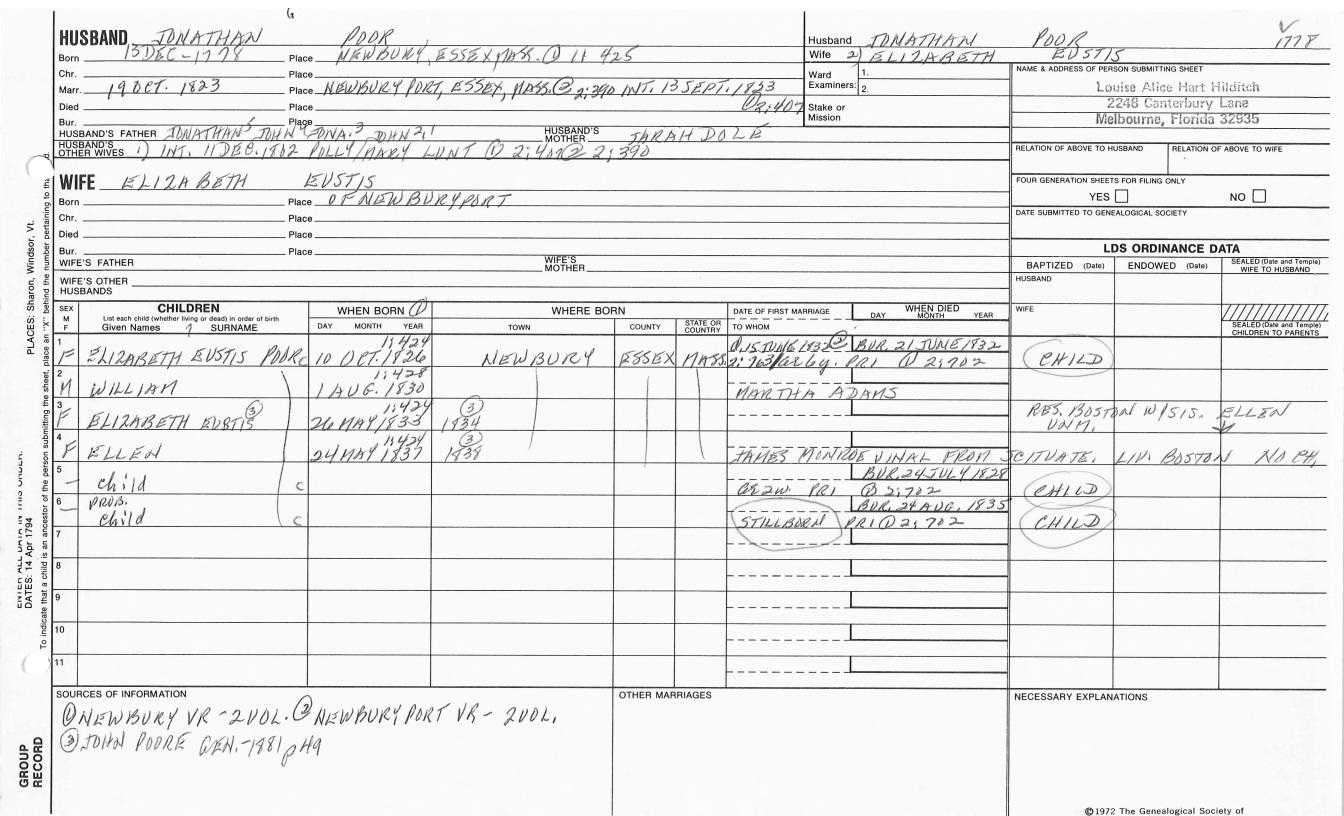 HUSBAND JONATHAN POOR
Born 13 DEC - 1778 Place NEWBURY, ESSEX, MASS. ① 1: 425
Chr. Place
Marr. 19 OCT. 1823 Place NEWBURY PORT, ESSEX, MASS. ② 2:390 INT. 13 SEPT. 1823
① 2:407
Died Place
Bur. Place
HUSBAND'S FATHER JONATHAN⁵ JOHN⁴ JONA.³ JOHN 2,1 HUSBAND'S MOTHER SARAH DOLE
HUSBAND'S OTHER WIVES 1) INT. 11 DEC. 1802 POLLY/MARY LUNT ① 2:407 ② 2:390
Husband JONATHAN POOR 1778
Wife 2) ELIZABETH EUSTIS
Ward Examiners: 1.
2.
Stake or Mission
NAME & ADDRESS OF PERSON SUBMITTING SHEET
Louise Alice Hart Hilditch
2246 Canterbury Lane
Melbourne, Florida 32935
RELATION OF ABOVE TO HUSBAND RELATION OF ABOVE TO WIFE
FOUR GENERATION SHEETS FOR FILING ONLY
YES NO
DATE SUBMITTED TO GENEALOGICAL SOCIETY
WIFE ELIZABETH EUSTIS
Born Place OF NEWBURYPORT
Chr. Place
Died Place
Bur. Place
WIFE'S FATHER WIFE'S MOTHER
WIFE'S OTHER HUSBANDS
LDS ORDINANCE DATA
BAPTIZED (Date) ENDOWED (Date) SEALED (Date and Temple) WIFE TO HUSBAND
HUSBAND
WIFE
SEALED (Date and Temple) CHILDREN TO PARENTS
SEX M F CHILDREN WHEN BORN ① WHERE BORN DATE OF FIRST MARRIAGE WHEN DIED
List each child (whether living or dead) in order of birth
Given Names SURNAME DAY MONTH YEAR TOWN COUNTY STATE OR COUNTRY TO WHOM DAY MONTH YEAR
1 1:424 D. 15 JUNE 1832 ② BUR. 21 JUNE 1832
F ELIZABETH EUSTIS POOR c 10 OCT. 1826 NEWBURY ESSEX MASS. 2:763 PRI ① 2:702 CHILD
2 1:428
M WILLIAM 1 AUG. 1830 MARTHA ADAMS
3 1:424
F ELIZABETH EUSTIS ③ 26 MAY 1833 ③ 1834 RES. BOSTON W/SIS. ELLEN
UNM.
4 1:424
F ELLEN 24 MAY 1837 ③ 1838 JAMES MONROE VINAL FROM SCITUATE. LIV. BOSTON NO CH.
5 BUR. 24 JULY 1828
- child c ae 2w. PRI ① 2:702 CHILD
6 PROB. BUR. 24 AUG. 1835
- child c STILLBORN PRI ① 2:702 CHILD
7
8
9
10
11
SOURCES OF INFORMATION
① NEWBURY VR - 2 VOL. ② NEWBURY PORT VR - 2 VOL.
③ JOHN POORE GEN. - 1881 p 49
OTHER MARRIAGES
NECESSARY EXPLANATIONS
©1972 The Genealogical Society of
PLACES: Sharon, Windsor, Vt.
ENTER ALL DATA IN THIS ORDER:
DATES: 14 Apr 1794
To indicate that a child is an ancestor of the person submitting the sheet, place an "X" behind the number pertaining to
GROUP RECORD